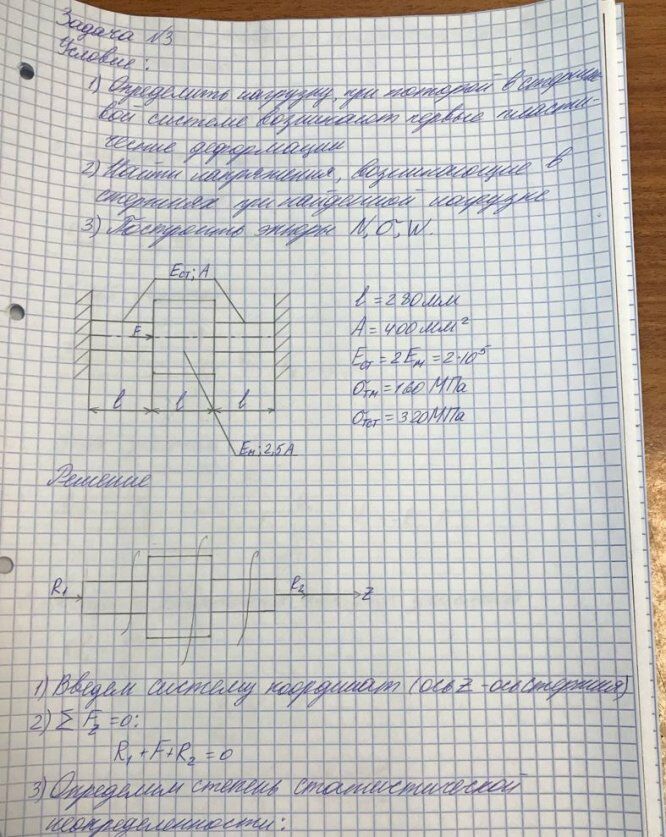 Задача №3
Условие:
1) Определить нагрузку, при которой в стержне-
вой системе возникают первые пласти-
ческие деформации
2) Найти напряжения, возникающие в
стержнях при найденной нагрузке
3) Построить эпюры N, σ, W.
Eст; A
F
l
l
l
Eм; 2,5A
l = 280мм
A = 400мм²
Eст = 2Eм = 2·10⁵
σтм = 160 МПа
σтст = 320МПа
Решение
R₁
R₂
Z
1) Введем систему координат (ось Z - ось стержня)
2) Σ Fz = 0:
R₁ + F + R₂ = 0
3) Определим степень статистической
неопределенности: